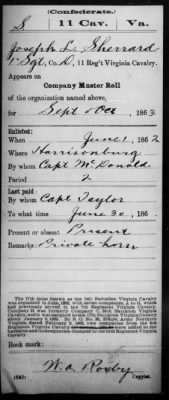 (Confederate.)
S 11 Cav. Va.
Joseph L. Sherrard
1st Sgt, Co. D, 11 Reg't Virginia Cavalry.
Appears on
Company Muster Roll
of the organization named above,
for Sept & Oct, 1863.
Enlisted:
When June 1, 1862
Where Harrisonburg
By whom Capt McDonald
Period 2
Last paid:
By whom Capt Taylor
To what time June 30, 186
Present or absent Present
Remarks: Private horse
Book mark:
W. A. Roxby
(642) Copyist.